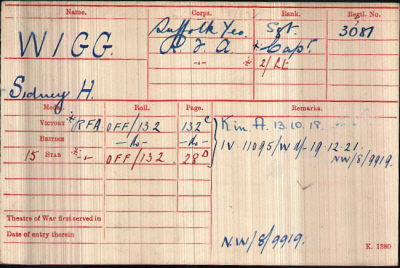 Name. Corps. Rank. Regtl. No.
WIGG. Suffolk Yeo. Sgt. 3081
R.F.A. * Capt.
Sidney H. -"- * 2/Lt
Medal. Roll. Page. Remarks.
Victory * RFA OFF/132 132C K in A. 13.10.18.
British -do- -do- IV 11095/W 19-12-21.
15 Star * -"- OFF/132 28D NW/8/9919.
Theatre of War first served in
Date of entry therein
NW/8/9919. K. 1380